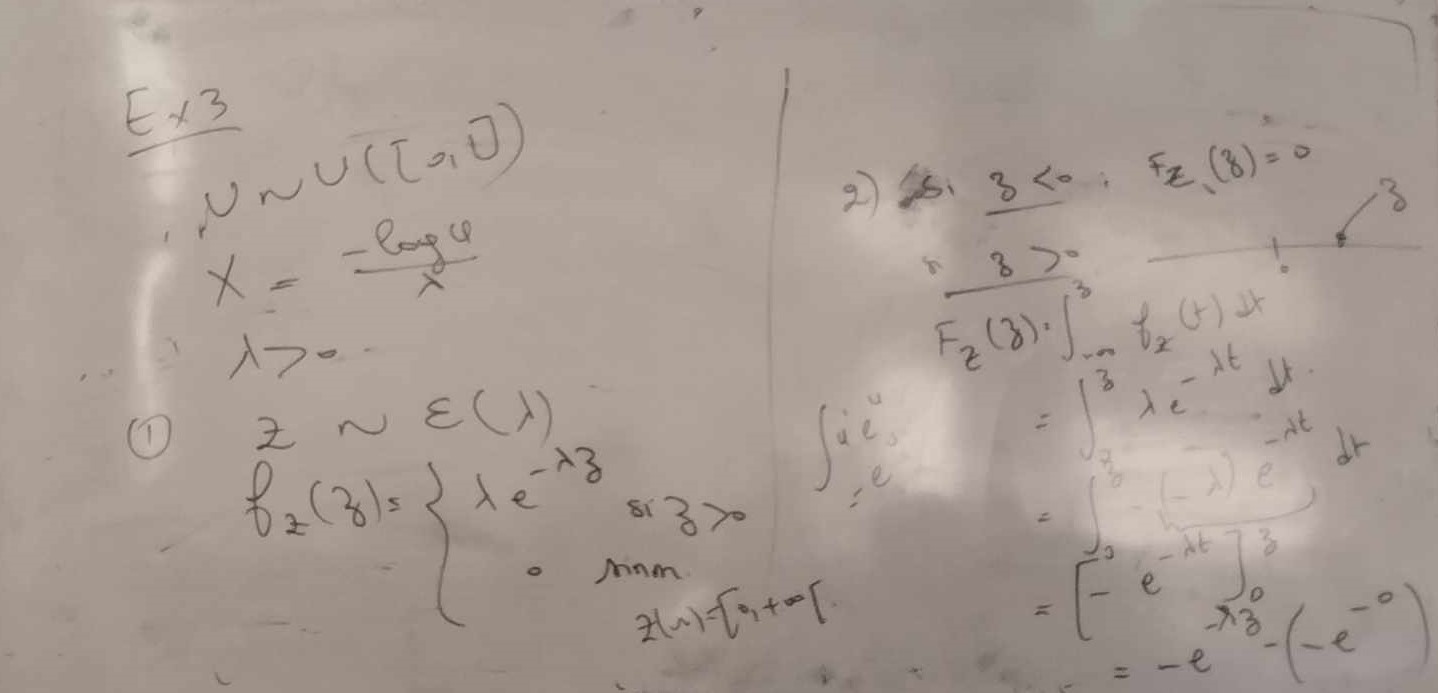 Ex 3
U ~ U([0,1])
X = -log U / λ
λ > 0
① Z ~ ε(λ)
f_Z(z) = { λ e^{-λz} si z > 0
0 sinon
Z(Ω) = [0, +∞[.
2) si z < 0 : F_Z(z) = 0
si z > 0
z
F_Z(z) = ∫_{-∞}^{z} f_Z(t) dt
= ∫_0^z λ e^{-λt} dt.
= ∫_0^z -(-λ) e^{-λt} dt
= [- e^{-λt}]_0^z
= -e^{-λz} - (-e^{-0})
∫ u' e^u
= e